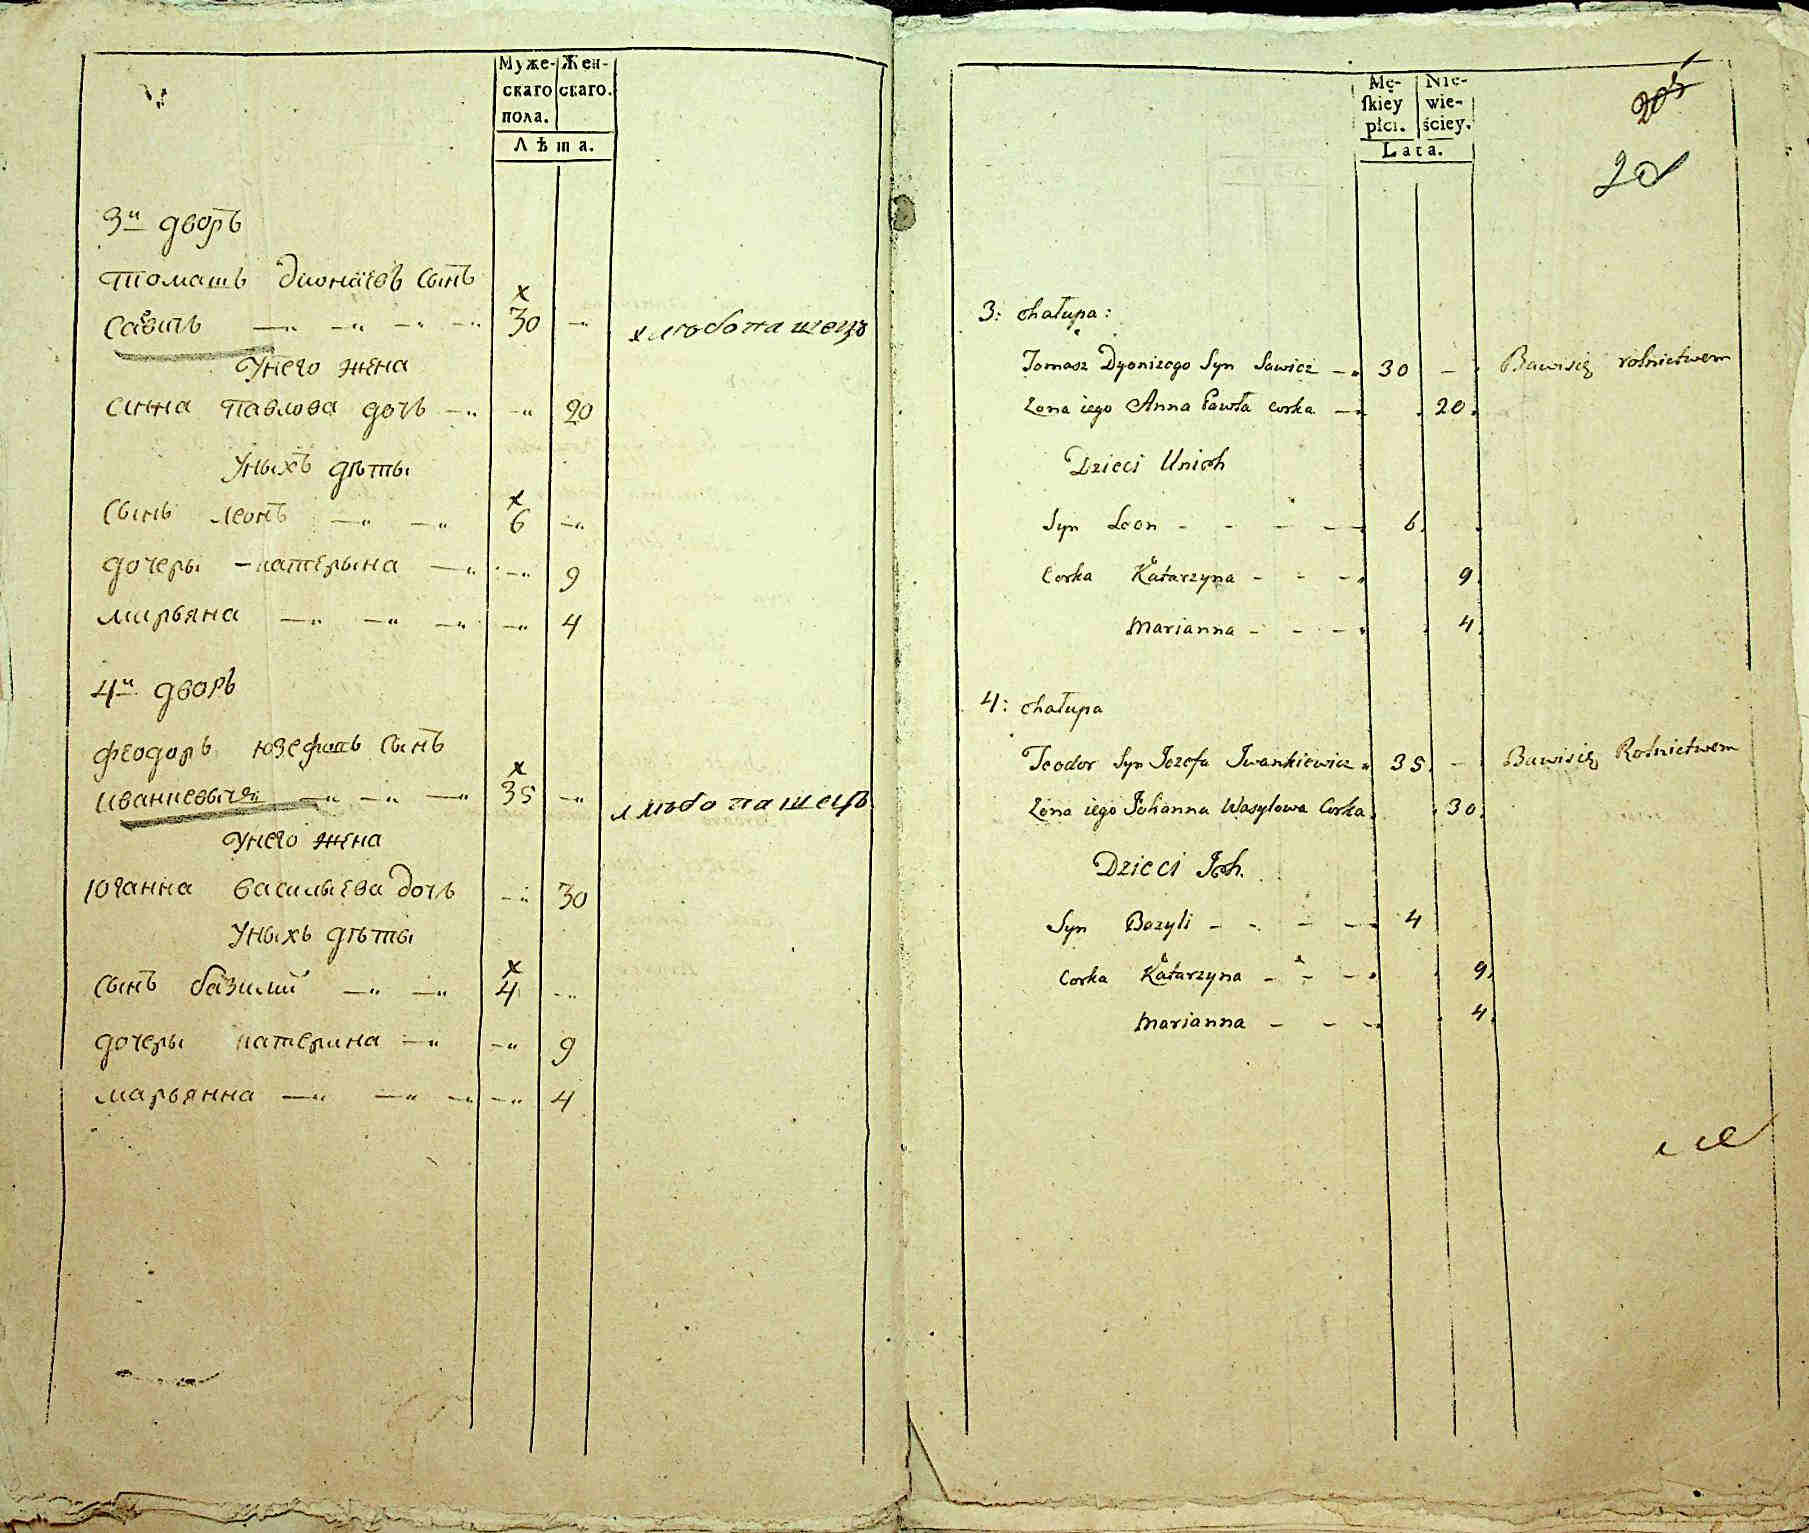 Муже- Жен-
скаго скаго.
пола.
Лѣта.
3й дворъ
Томашъ Дионизовъ Сынъ
Савичъ — — — — 30 — хлѣбопашецъ
У него жена
Анна Павлова дочь — — 20
У ныхъ дѣты
Сынъ Леонъ — — 6 —
дочеры Катерына — — 9
Марьяна — — — — 4
4й дворъ
Феодоръ Юзефовъ Сынъ
Иванкевичъ — — — 35 — хлѣбопашецъ
У него жена
Юганна Васильева дочь — 30
У ныхъ дѣты
Сынъ Базилий — — 4 —
дочеры Катерина — — 9
Марьянна — — — — 4
Mę- Nie-
skiey wie-
płci. ściey.
Lata.
205
20
3: chałupa:
Tomasz Dyonizego Syn Sawicz — 30 — Bawi się rolnictwem
Zona iego Anna Pawła Corka — 20
Dzieci Unich
Syn Leon - - - — 6
Corka Katarzyna - - - 9
Marianna - - - 4
4: chałupa
Teodor Syn Jozefa Jwankiewicz 35 — Bawi się Rolnictwem
Zona iego Johanna Wasylowa Corka 30
Dzieci Jch.
Syn Bazyli - - - — 4
Corka Katarzyna - - - 9
Marianna - - - 4